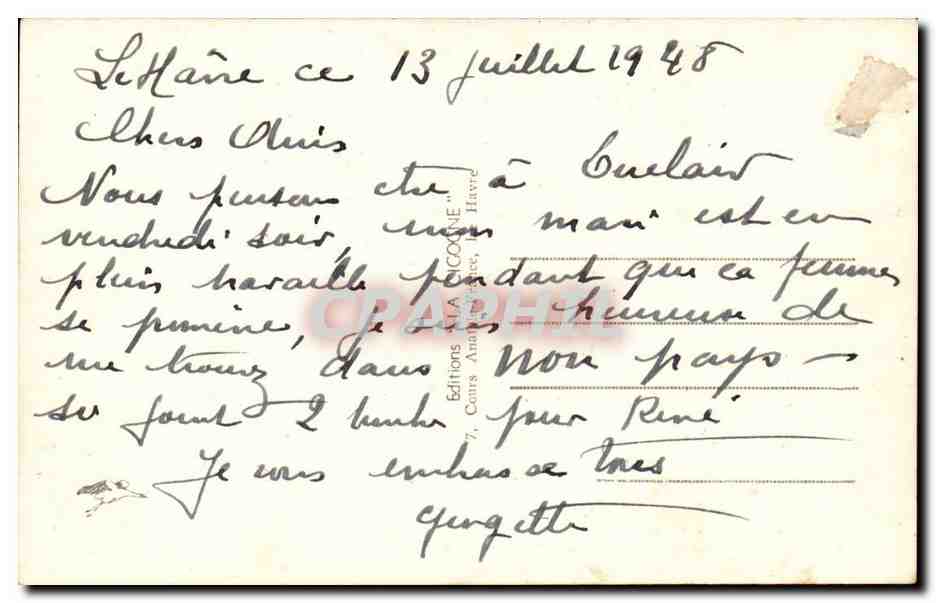 Le Hâvre ce 13 Juillet 1948
Chers Amis
Nous pensons être à Duclair
vendredi soir, mon mari est en
plein travaille pendant que ca femme
se promène, je suis heureuse de
me trouvez dans mon pays —
si joint 2 timbre pour René
Je vous embrasse tous
Georgette
Editions "LA CIGOGNE"
7, Cours Anatole-France, Le Havre
CPAPHIL